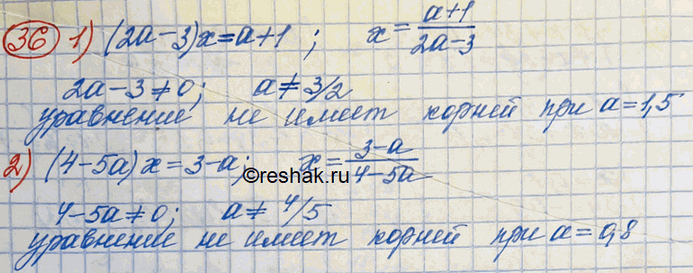 36 1) (2a-3)x=a+1; x=\frac{a+1}{2a-3}
2a-3≠0; a≠3/2
уравнение не имеет корней при a=1,5
2) (4-5a)x=3-a; x=\frac{3-a}{4-5a}
©reshak.ru
4-5a≠0; a≠4/5
уравнение не имеет корней при a=0,8